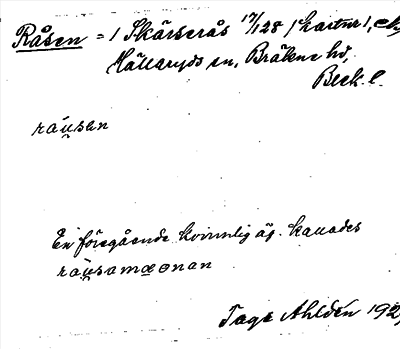 Råsen = / Skärserås 17/128 / kartnr 1,
Hällaryds sn, Bräkne hd,
Blek. l.
råu̯sən
En föregående kvinnlig äg. kallades
råu̯samoenan
Tage Ahldén 192